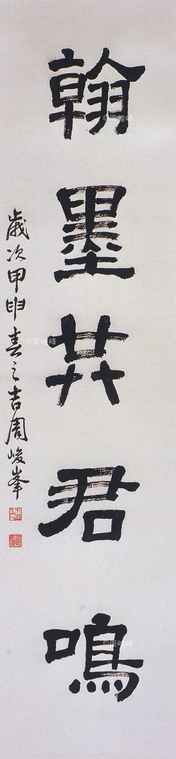 翰墨共君鳴
歲次甲申春之吉周峻峯